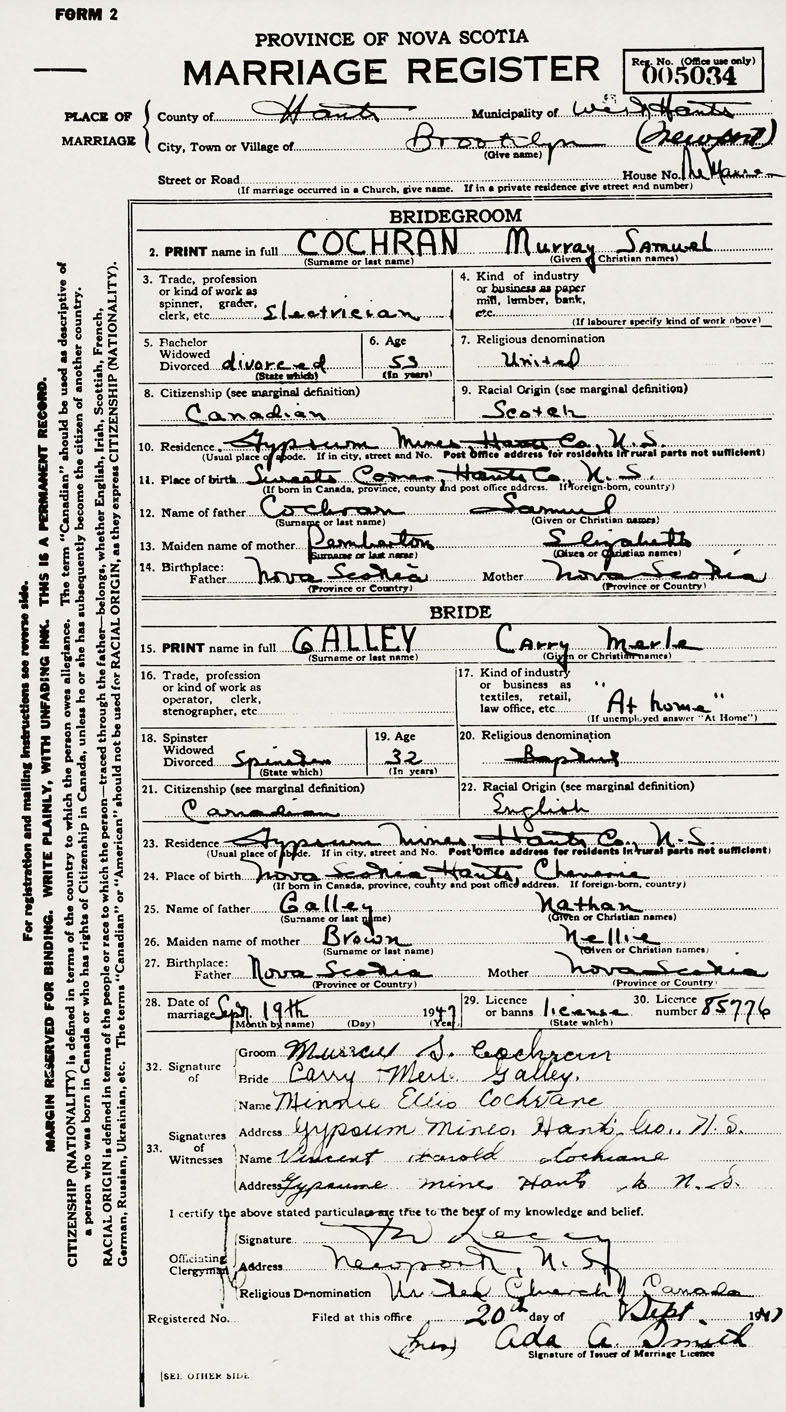 FORM 2
PROVINCE OF NOVA SCOTIA
MARRIAGE REGISTER
Reg. No. (Office use only)
005034
PLACE OF MARRIAGE
County of Hants Municipality of West Hants
City, Town or Village of Brooklyn (Newport)
(Give name)
Street or Road House No. The Manse
(If marriage occurred in a Church, give name. If in a private residence give street and number)
BRIDEGROOM
2. PRINT name in full COCHRAN Murray Samuel
(Surname or last name) (Given or Christian names)
3. Trade, profession or kind of work as spinner, grader, clerk, etc. Electrician
4. Kind of industry or business as paper mill, lumber, bank, etc.
(If labourer specify kind of work above)
5. Bachelor Widowed Divorced divorced
(State which)
6. Age 53
(In years)
7. Religious denomination
United
8. Citizenship (see marginal definition)
Canadian
9. Racial Origin (see marginal definition)
Scotch
10. Residence Gypsum Mines, Hants Co., N.S.
(Usual place of abode. If in city, street and No. Post Office address for residents in rural parts not sufficient)
11. Place of birth Sweets Corner, Hants Co., N.S.
(If born in Canada, province, county and post office address. If foreign-born, country)
12. Name of father Cochran Samuel
(Surname or last name) (Given or Christian names)
13. Maiden name of mother Pemberton Elizabeth
(Surname or last name) (Given or Christian names)
14. Birthplace: Father Nova Scotia Mother Nova Scotia
(Province or Country) (Province or Country)
BRIDE
15. PRINT name in full GALLEY Carry Merle
(Surname or last name) (Given or Christian names)
16. Trade, profession or kind of work as operator, clerk, stenographer, etc.
17. Kind of industry or business as textiles, retail, law office, etc. "At home"
(If unemployed answer "At Home")
18. Spinster Widowed Divorced Spinster
(State which)
19. Age 32
(In years)
20. Religious denomination
Baptist
21. Citizenship (see marginal definition)
Canadian
22. Racial Origin (see marginal definition)
English
23. Residence Gypsum Mines, Hants Co., N.S.
(Usual place of abode. If in city, street and No. Post Office address for residents in rural parts not sufficient)
24. Place of birth Nova Scotia, Hants,
(If born in Canada, province, county and post office address. If foreign-born, country)
25. Name of father Galley Nathan
(Surname or last name) (Given or Christian names)
26. Maiden name of mother Brown Nellie
(Surname or last name) (Given or Christian names)
27. Birthplace: Father Nova Scotia Mother Nova Scotia
(Province or Country) (Province or Country)
28. Date of marriage Sept. 19th 1947
(Month by name) (Day) (Year)
29. Licence or banns license
(State which)
30. Licence number 85776
32. Signature of
Groom Murray S. Cochran
Bride Carry Merle Galley.
33. Signatures of Witnesses
Name Minnie Ellis Cochrane
Address Gypsum Mines, Hants Co., N.S.
Name Vincent Harold Cochrane
Address Gypsume mines Hants Co N.S.
I certify the above stated particulars are true to the best of my knowledge and belief.
Officiating Clergyman
Signature
Address Newport, N.S.
Religious Denomination United Church of Canada
Registered No. Filed at this office 20th day of Sept. 1947
(Mrs) Ada A. Smith
Signature of Issuer of Marriage Licence
[SEE OTHER SIDE
For registration and mailing instructions see reverse side.
MARGIN RESERVED FOR BINDING. WRITE PLAINLY, WITH UNFADING INK. THIS IS A PERMANENT RECORD.
CITIZENSHIP (NATIONALITY) is defined in terms of the country to which the person owes allegiance. The term "Canadian" should be used as descriptive of
a person who was born in Canada or who has rights of Citizenship in Canada, unless he or she has subsequently become the citizen of another country.
RACIAL ORIGIN is defined in terms of the people or race to which the person—traced through the father—belongs, whether English, Irish, Scottish, French,
German, Russian, Ukrainian, etc. The terms "Canadian" or "American" should not be used for RACIAL ORIGIN, as they express CITIZENSHIP (NATIONALITY).